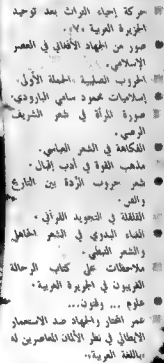 حركة إحياء التراث بعد توحيد
الجزيرة العربية «٧».
صور من الجهاد الأفغاني في العصر
الإسلامي.
الحروب الصليبية «الحملة الأولى».
إسلاميات محمود سامي البارودي.
صورة المرأة في شعر الشريف
الرضي.
الفكاهة في الشعر العباسي.
مذهب القوة في أدب إقبال.
شعر حروب الرّدة بين التاريخ
والفن.
القلقلة في التجويد القرآني.
الغناء البدوي في الشعر الجاهلي
والشعر النبطي.
ملاحظات على كتاب الرحالة
الغربيون في الجزيرة العربية.
علوم ... وفنون...
عمر المختار والجهاد ضد الاستعمار
الإيطالي في نظر الألمان المعاصرين له
«باللغة العربية».